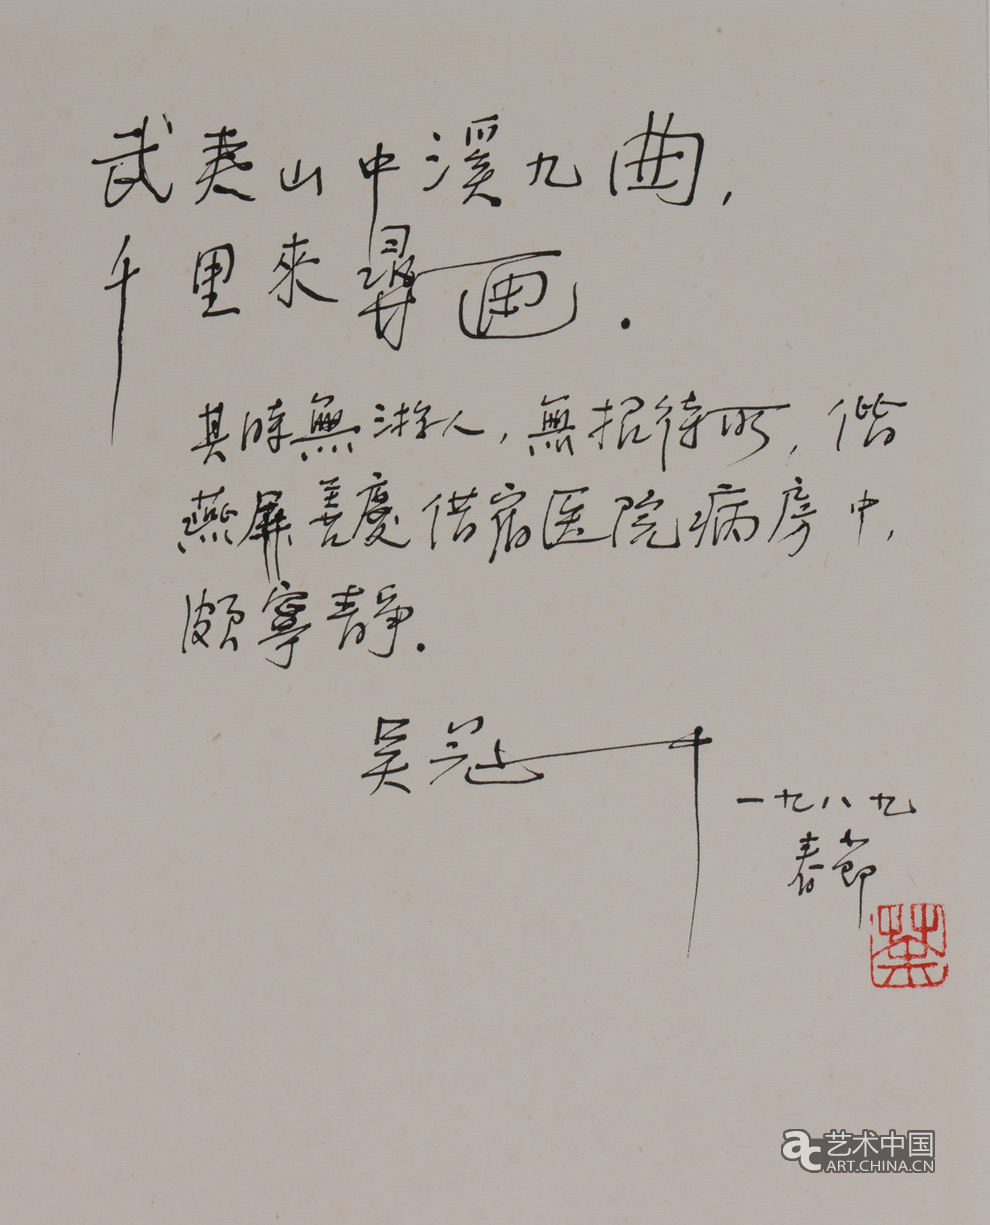 武夷山中溪九曲，
千里來尋画．
其時無游人，無招待所，偕
燕屏善慶借宿医院病房中，
頗寧靜．
吴冠中
一九八九
春節
荼
艺术中国
ART.CHINA.CN